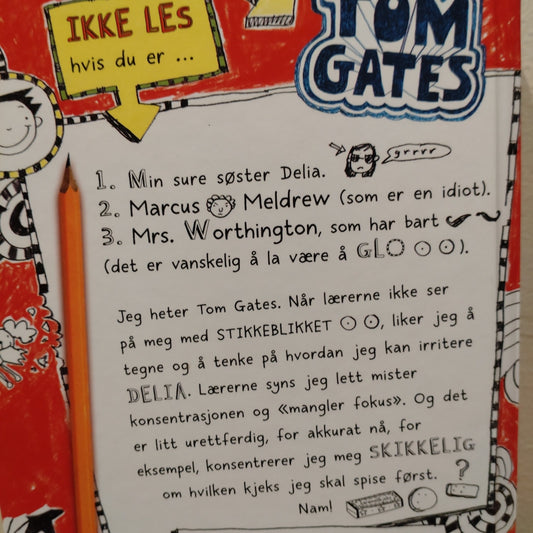 IKKE LES
hvis du er ...
TOM
GATES
1. Min sure søster Delia.
grrrr
2. Marcus Meldrew (som er en idiot).
3. Mrs. Worthington, som har bart
(det er vanskelig å la være å GLO).
Jeg heter Tom Gates. Når lærerne ikke ser
på meg med STIKKEBLIKKET, liker jeg å
tegne og å tenke på hvordan jeg kan irritere
DELIA. Lærerne syns jeg lett mister
konsentrasjonen og «mangler fokus». Og det
er litt urettferdig, for akkurat nå, for
eksempel, konsentrerer jeg meg SKIKKELIG
om hvilken kjeks jeg skal spise først.
Nam! ?